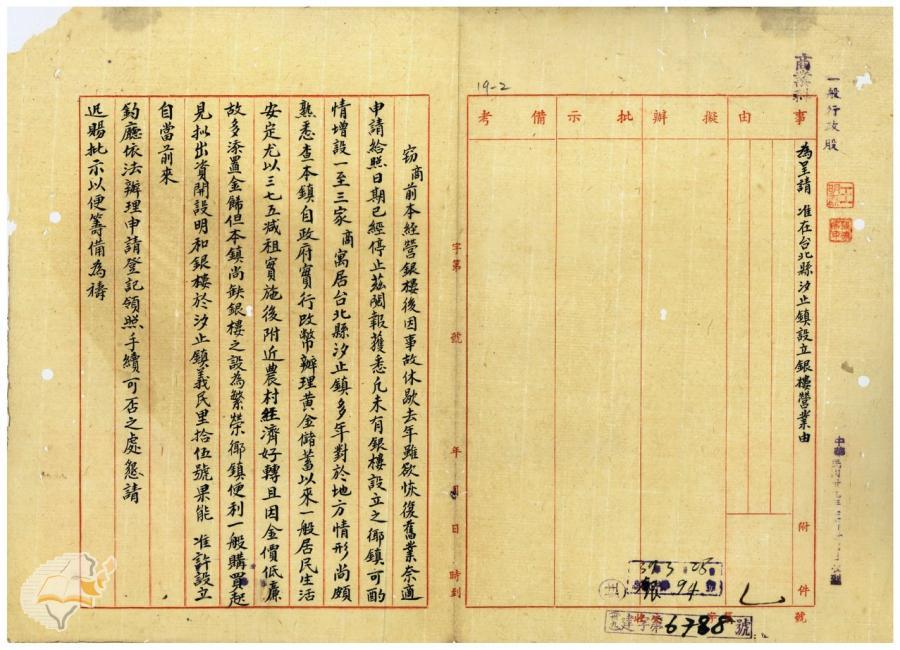 一般行政股
商業科
19-2
事由
擬辦
批示
備考
為呈請 准在台北縣汐止鎮設立銀樓營業由
附件
號
字第 號 年 月 日 時到
39 3 25
94
建字第6788號
竊商前本經營銀樓後因事故休歇去年雖欲恢復舊業奈適
申請給照日期已經停止茲閱報獲悉凡未有銀樓設立之鄉鎮可酌
情增設一至三家商寓居台北縣汐止鎮多年對於地方情形尚頗
熟悉查本鎮自政府實行改幣辦理黃金儲蓄以來一般居民生活
安定尤以三七五減租實施後附近農村經濟好轉且因金價低廉
故多添置金飾但本鎮尚缺銀樓之設為繁榮鄉鎮便利一般購買起
見擬出資開設明和銀樓於汐止鎮義民里拾伍號果能 准許設立
自當前來
鈞廳依法辦理申請登記領照手續可否之處懇請
迅賜批示以便籌備為禱